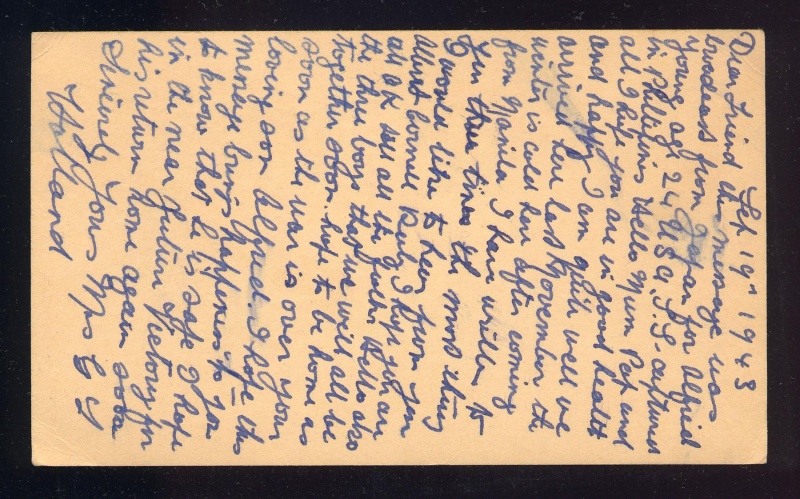 Feb 19th 1943
Dear Friend this message was
broadcast from Japan for Alfried
young age 24 U.S.A. S.S. captured
in Phillipins Hello Mum Pat and
all I hope you are in good health
and happy I am quite well we
arrived here last November the
winter is cold here after coming
from Manila I have written to
you three times the most thing
I would like to hear from you
about Bonnie Ruby I hope you are
all OK tell all the folks Hello also
the three boys that we will all be
together soon hope to be home as
soon as the war is over your
loving son Alfried I hope this
message brings happiness to you
to know that he is safe I hope
in the near future Victory for
his return home again soon
Sincerely Yours Mrs C Y
Holland